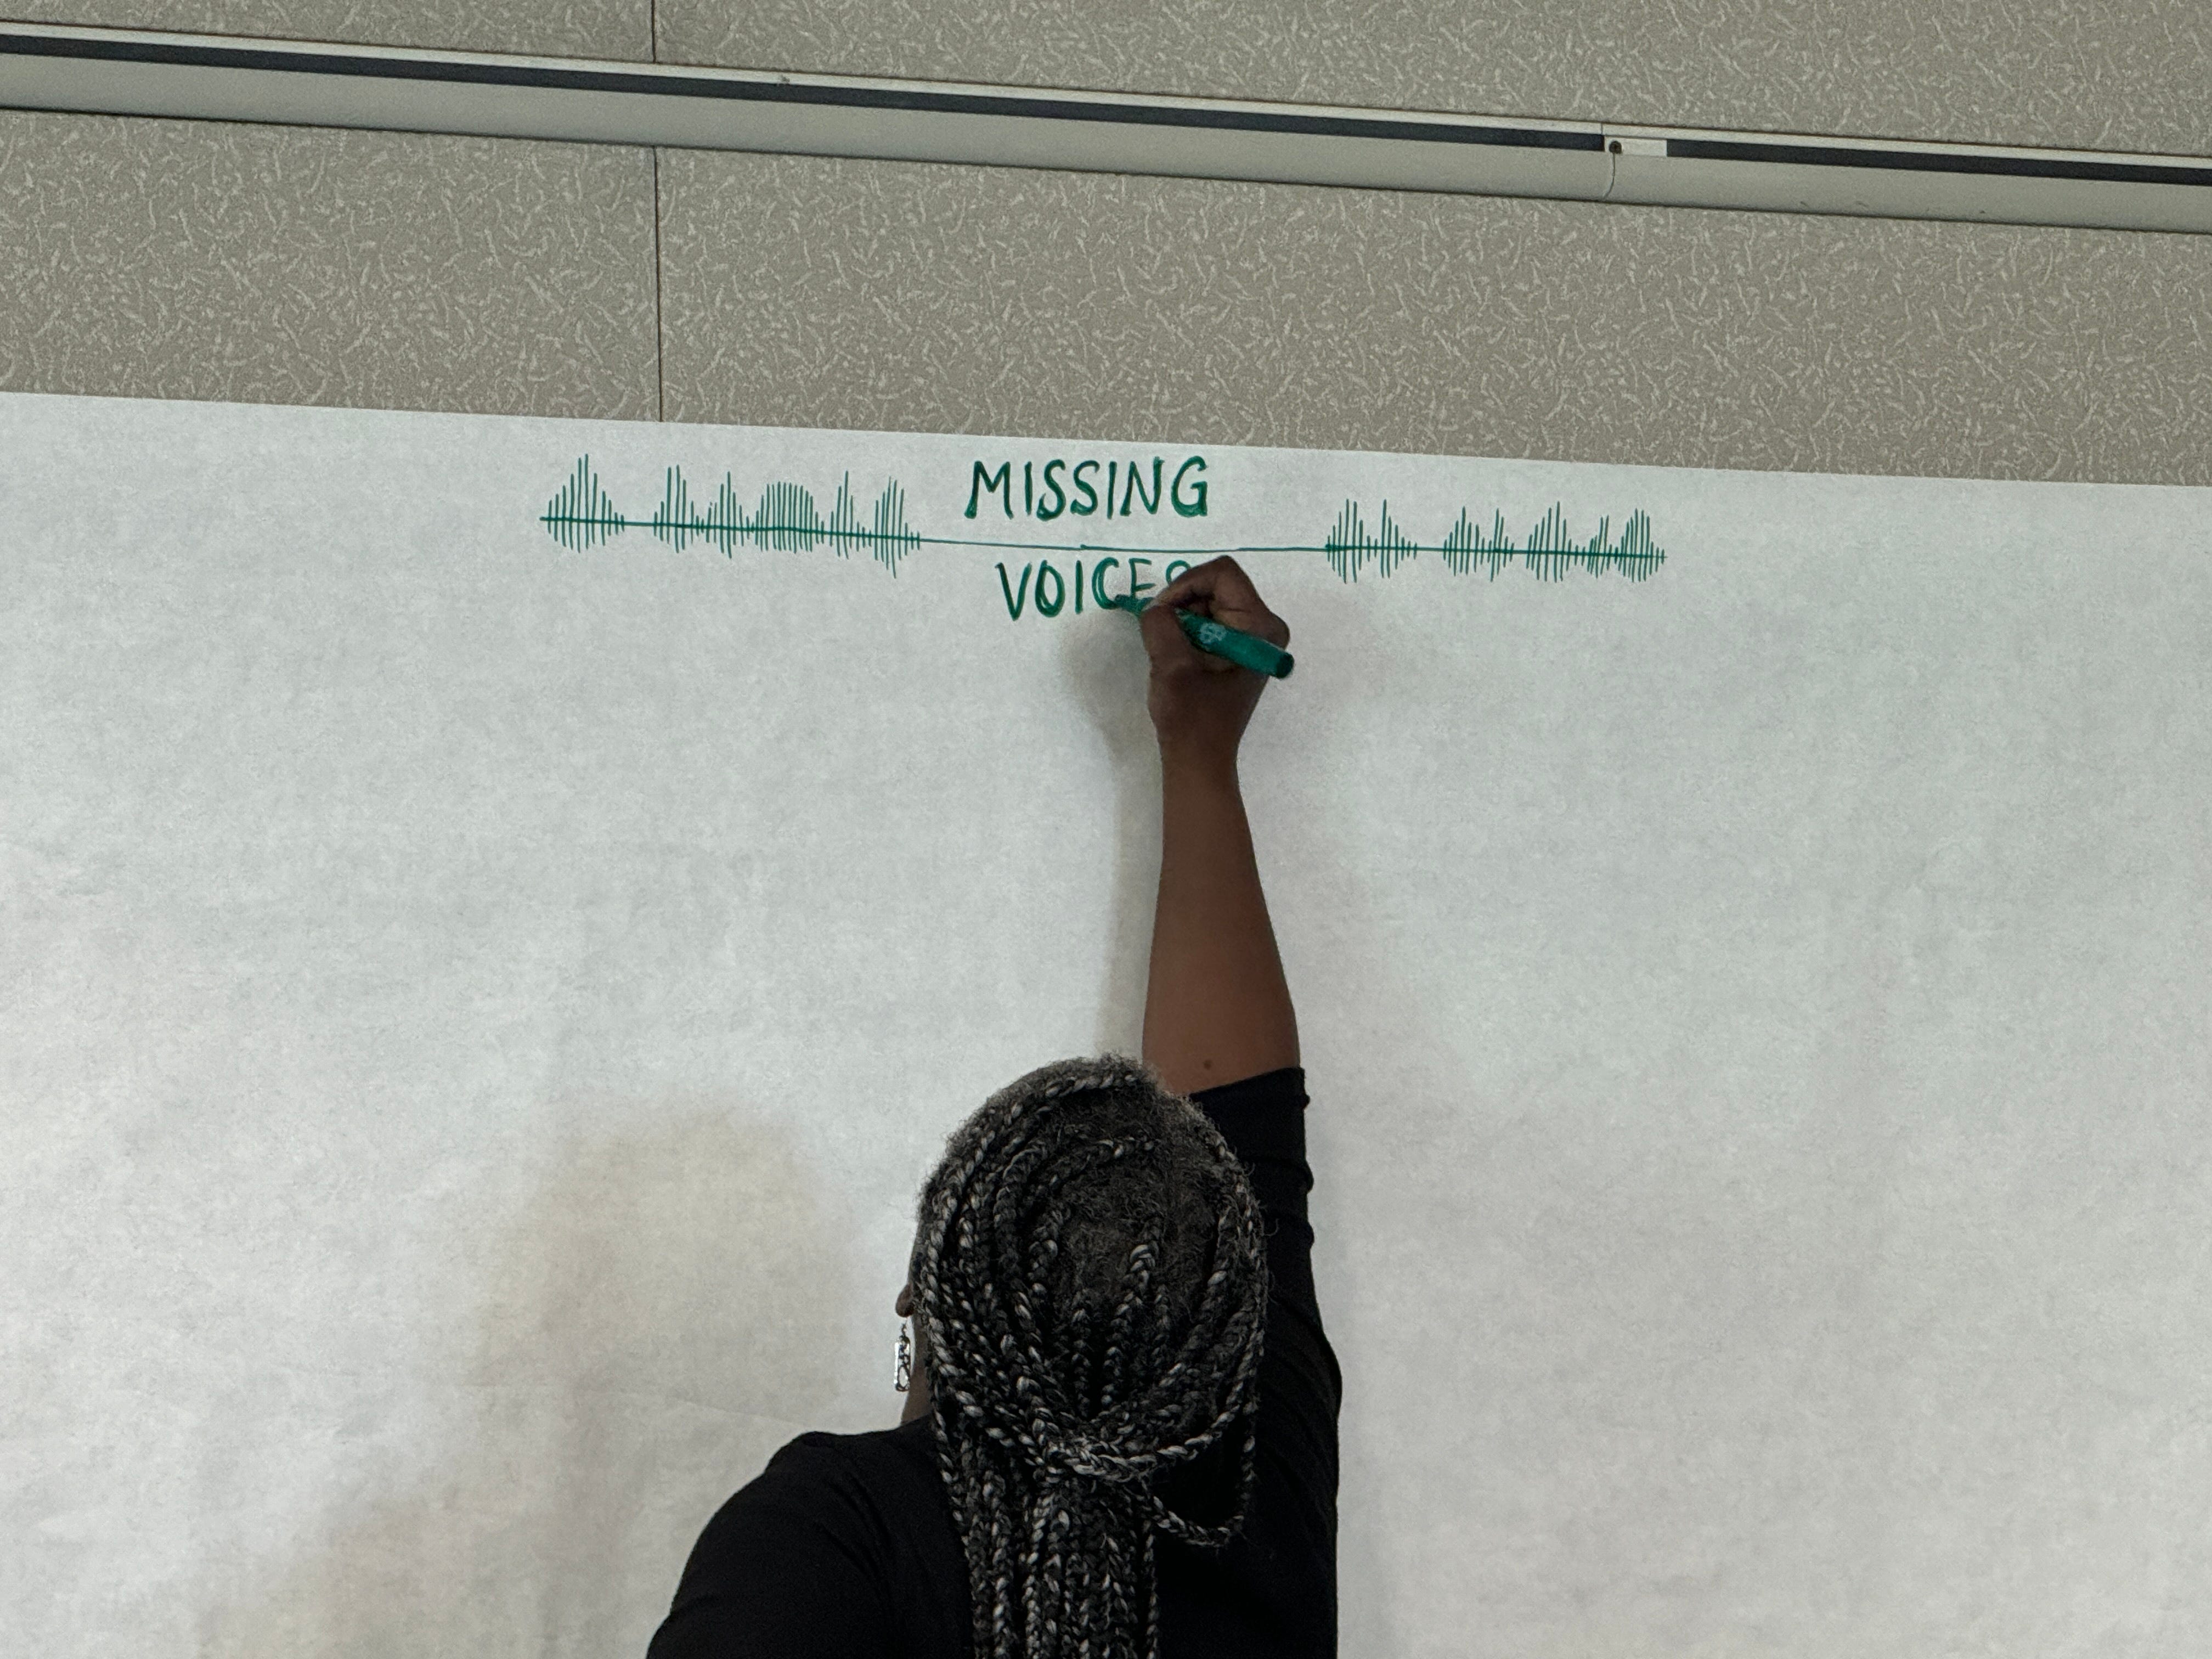 MISSING
VOICES